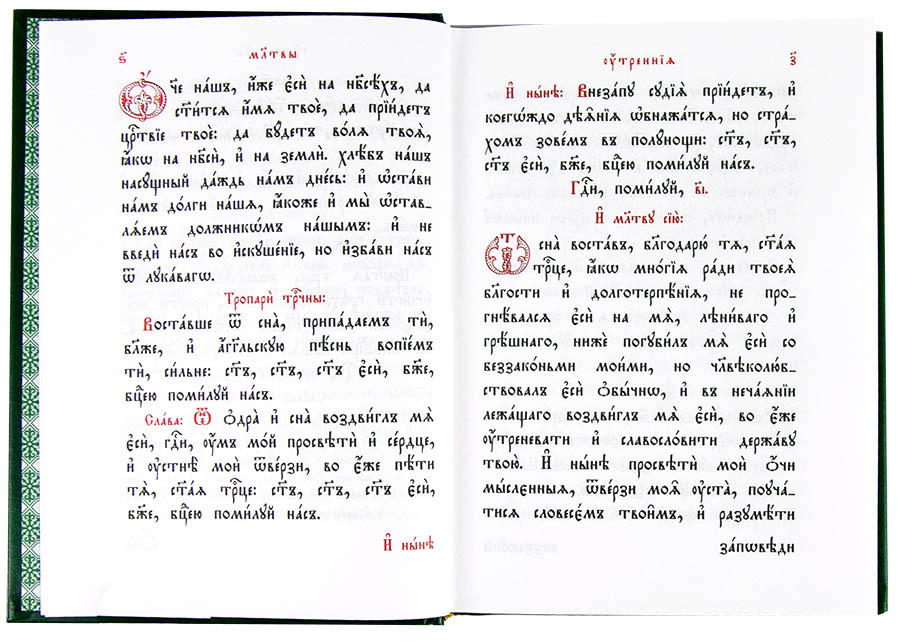 ѕ҃
мл҃твы
Ѻ҆́че на́шъ, и҆́же є҆сѝ на нб҃сѣ́хъ, да
ст҃и́тсѧ и҆́мѧ твоѐ, да прїи́детъ
црⷭ҇твїе твоѐ: да бꙋ́детъ во́лѧ твоѧ̀,
ꙗ҆́кѡ на нб҃сѝ, и҆ на землѝ. хлѣ́бъ на́шъ
насꙋ́щный да́ждь на́мъ дне́сь: и҆ ѡ҆ста́ви
на́мъ до́лги на́шѧ, ꙗ҆́коже и҆ мы̀ ѡ҆став-
лѧ́емъ должникѡ́мъ на́шымъ: и҆ не
введѝ на́съ во и҆скꙋше́нїе, но и҆зба́ви на́съ
ѿ лꙋка́вагѡ.
Тропарѝ трⷪ҇чны:
Воста́вше ѿ сна̀, припа́даемъ тѝ,
бл҃же, и҆ а҆́гг҃льскꙋю пѣ́снь вопїе́мъ
тѝ, си́льне: ст҃ъ, ст҃ъ, ст҃ъ є҆сѝ, бж҃е,
бцⷣею поми́лꙋй на́съ.
Сла́ва: Ѿ ѻ҆дра̀ и҆ сна̀ воздви́глъ мѧ̀
є҆сѝ, гдⷭ҇и, ᲂу҆́мъ мо́й просвѣтѝ и҆ се́рдце,
и҆ ᲂу҆стнѣ̀ моѝ ѿве́рзи, во є҆́же пѣ́ти
тѧ̀, ст҃а́ѧ трⷪ҇це: ст҃ъ, ст҃ъ, ст҃ъ є҆сѝ,
бж҃е, бцⷣею поми́лꙋй на́съ.
И҆ ны́нѣ
ᲂу҆́треннїѧ
з҃
И҆ ны́нѣ: Внеза́пꙋ сꙋдїѧ̀ прїи́детъ, и҆
коегѡ́ждо дѣѧ̑нїѧ ѡ҆бнажа́тсѧ, но стра́-
хомъ зове́мъ въ полꙋ́нощи: ст҃ъ, ст҃ъ,
ст҃ъ є҆сѝ, бж҃е, бцⷣею поми́лꙋй на́съ.
Гдⷭ҇и, поми́лꙋй, в҃і.
И҆ мл҃твꙋ сїю̀:
Ѿ сна̀ воста́въ, благодарю̀ тѧ̀, ст҃а́ѧ
трⷪ҇це, ꙗ҆́кѡ мно́гїѧ ра́ди твоеѧ̀
бл҃гости и҆ долготерпѣ́нїѧ, не про-
гнѣ́валсѧ є҆сѝ на мѧ̀, лѣни́ваго и҆
грѣ́шнаго, нижѐ погꙋби́лъ мѧ̀ є҆сѝ со
беззако́ньми мои́ми, но чл҃вѣколю́б-
ствовалъ є҆сѝ ѻ҆бы́чнѡ, и҆ в неча́ѧнїи
лежа́щаго воздви́глъ мѧ̀ є҆сѝ, во є҆́же
ᲂу҆́треневати и҆ славосло́вити держа́вꙋ
твою̀. И҆ ны́нѣ просвѣтѝ моѝ ѻ҆́чи
мы́слєнныѧ, ѿве́рзи моѧ̑ ᲂу҆ста̀, поꙋча́-
тисѧ словесє́мъ твои̑мъ, и҆ разꙋмѣ́ти
за́пѡвѣди